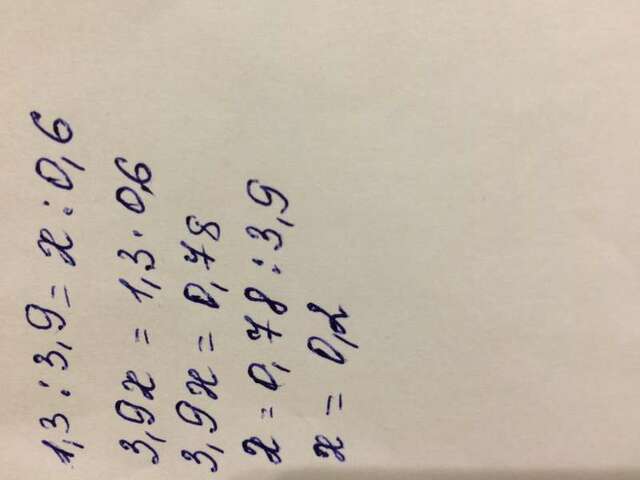 1,3 : 3,9 = x : 0,6
3,9x = 1,3 · 0,6
3,9x = 0,78
x = 0,78 : 3,9
x = 0,2